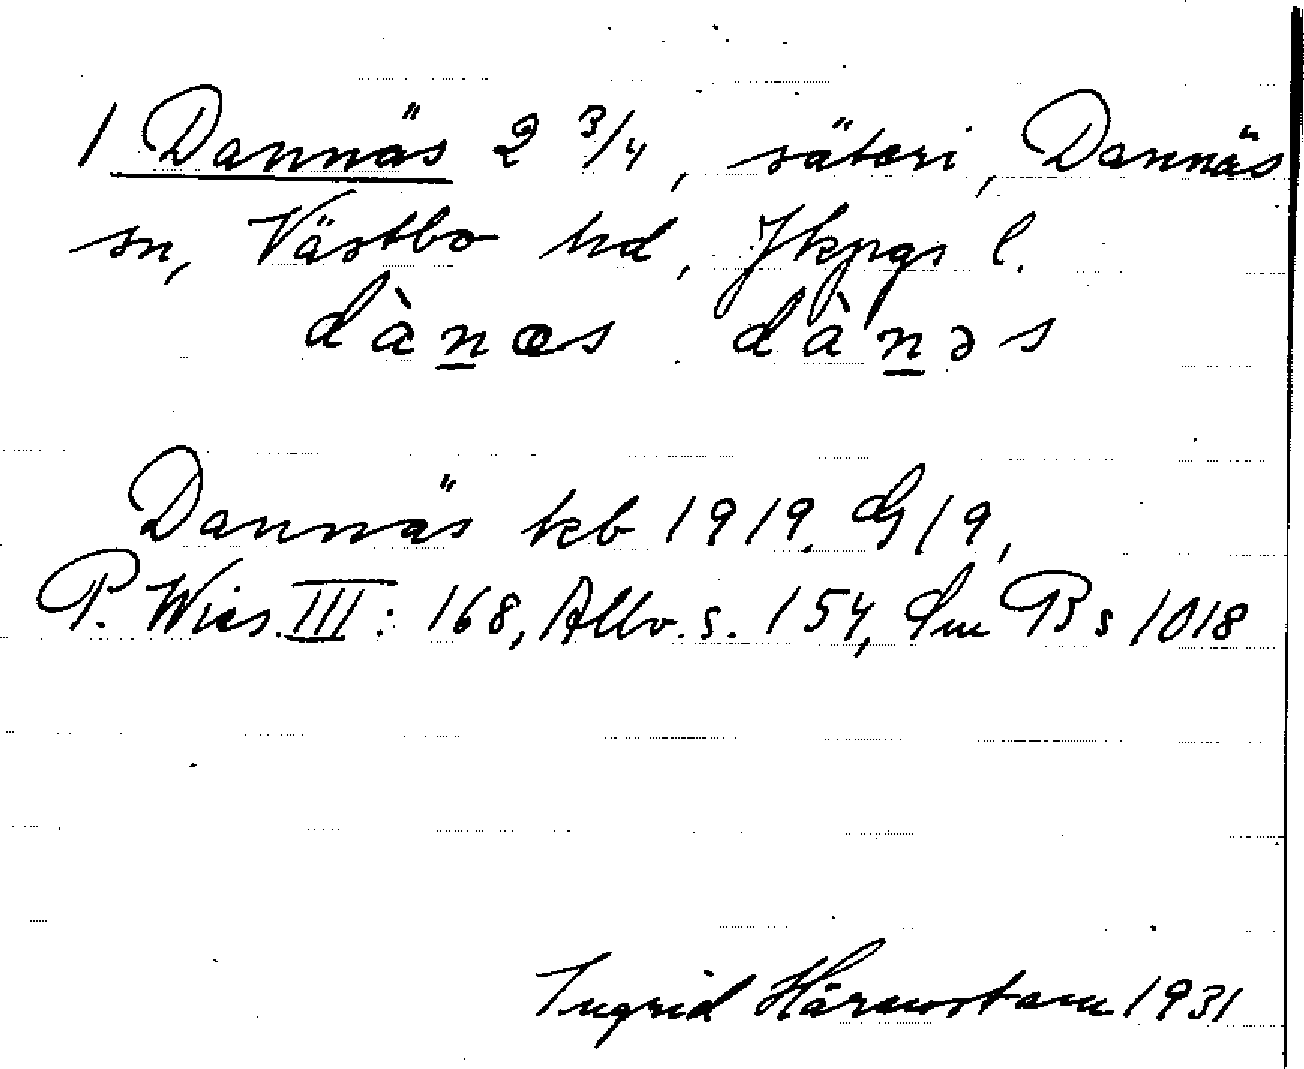 1 Dannäs 2 3/4, säteri, Dannäs
sn, Västbo hd, Jkpgs l.
dànæs dànəs
Dannäs kb 1919. G19,
P. Wies. III: 168, Allv. s. 154, Sm B s 1018
Ingrid Härenstam 1931